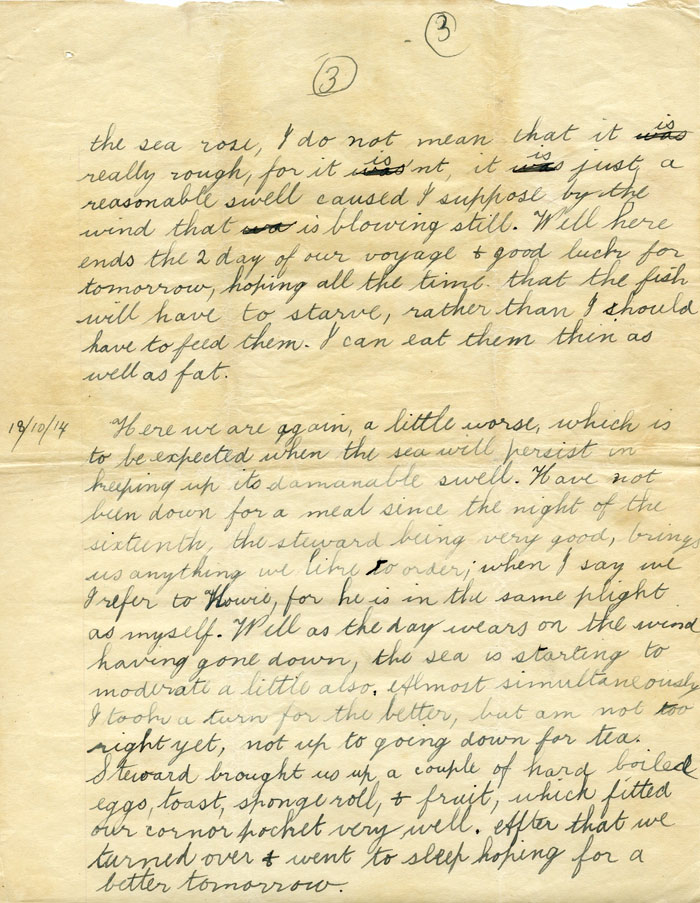 3
3
the sea rose, I do not mean that it was is
really rough, for it was is nt, it was is just a
reasonable swell caused I suppose by the
wind that wa is blowing still. Well here
ends the 2 day of our voyage & good luck for
tomorrow, hoping all the time. that the fish
will have to starve, rather than I should
have to feed them. I can eat them thin as
well as fat.
18/10/14 Here we are again, a little worse, which is
to be expected when the sea will persist in
keeping up its damanable swell. Have not
been down for a meal since the night of the
sixteenth, the steward being very good, brings
us anything we like to order; when I say we
I refer to Howie, for he is in the same plight
as myself. Well as the day wears on the wind
having gone down, the sea is starting to
moderate a little also. Almost simultaneously
I took a turn for the better, but am not too
right yet, not up to going down for tea.
Steward brought us up a couple of hard boiled
eggs, toast, sponge roll, & fruit, which fitted
our cornor pocket very well. After that we
turned over & went to sleep hoping for a
better tomorrow.